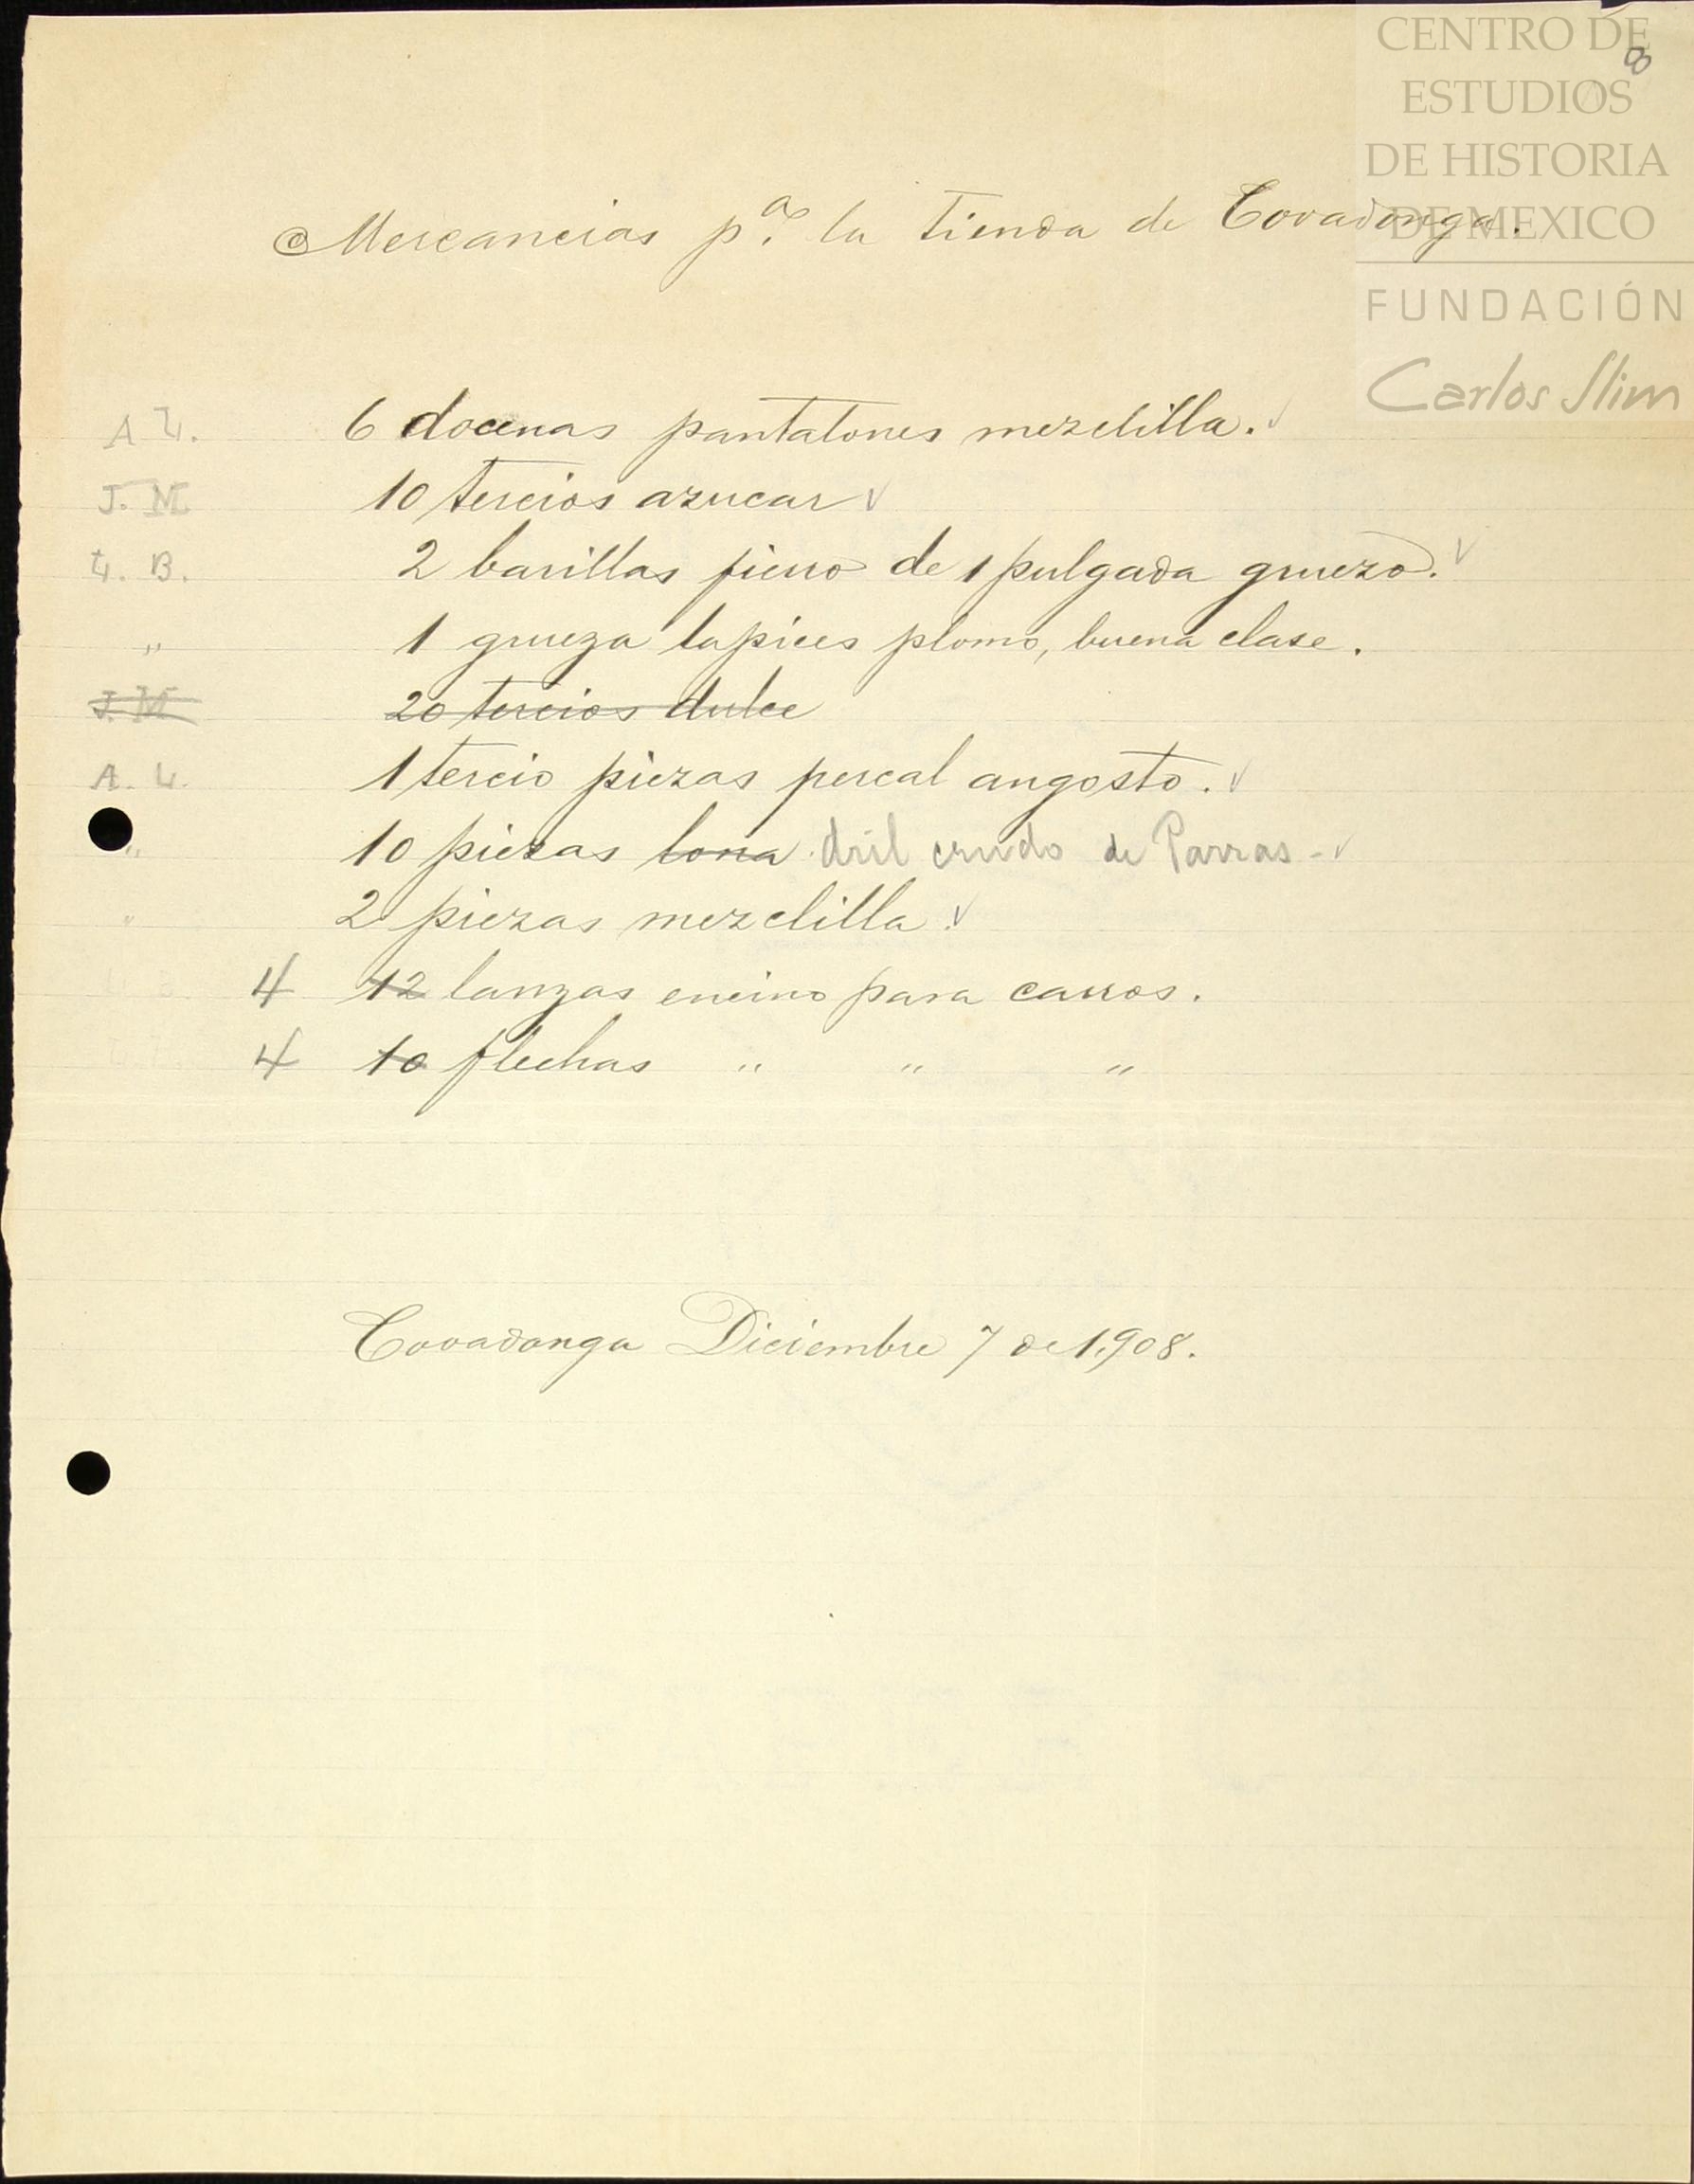 CENTRO DE
ESTUDIOS
DE HISTORIA
DE MEXICO
FUNDACIÓN
Carlos Slim
8
Mercancias pª. la tienda de Covadonga.
A L. 6 docenas pantalones mezclilla. ✓
J. M. 10 tercios azucar ✓
L. B. 2 barillas fierro de 1 pulgada gruezo. ✓
" 1 grueza lapices plomo, buena clase.
J. M. 20 tercios dulce
A. L. 1 tercio piezas percal angosto. ✓
" 10 piezas lona dril crudo de Parras - ✓
" 2 piezas mezclilla. ✓
4 12 lanzas encino para carros.
4 10 flechas " " "
Covadonga Diciembre 7 de 1,908.